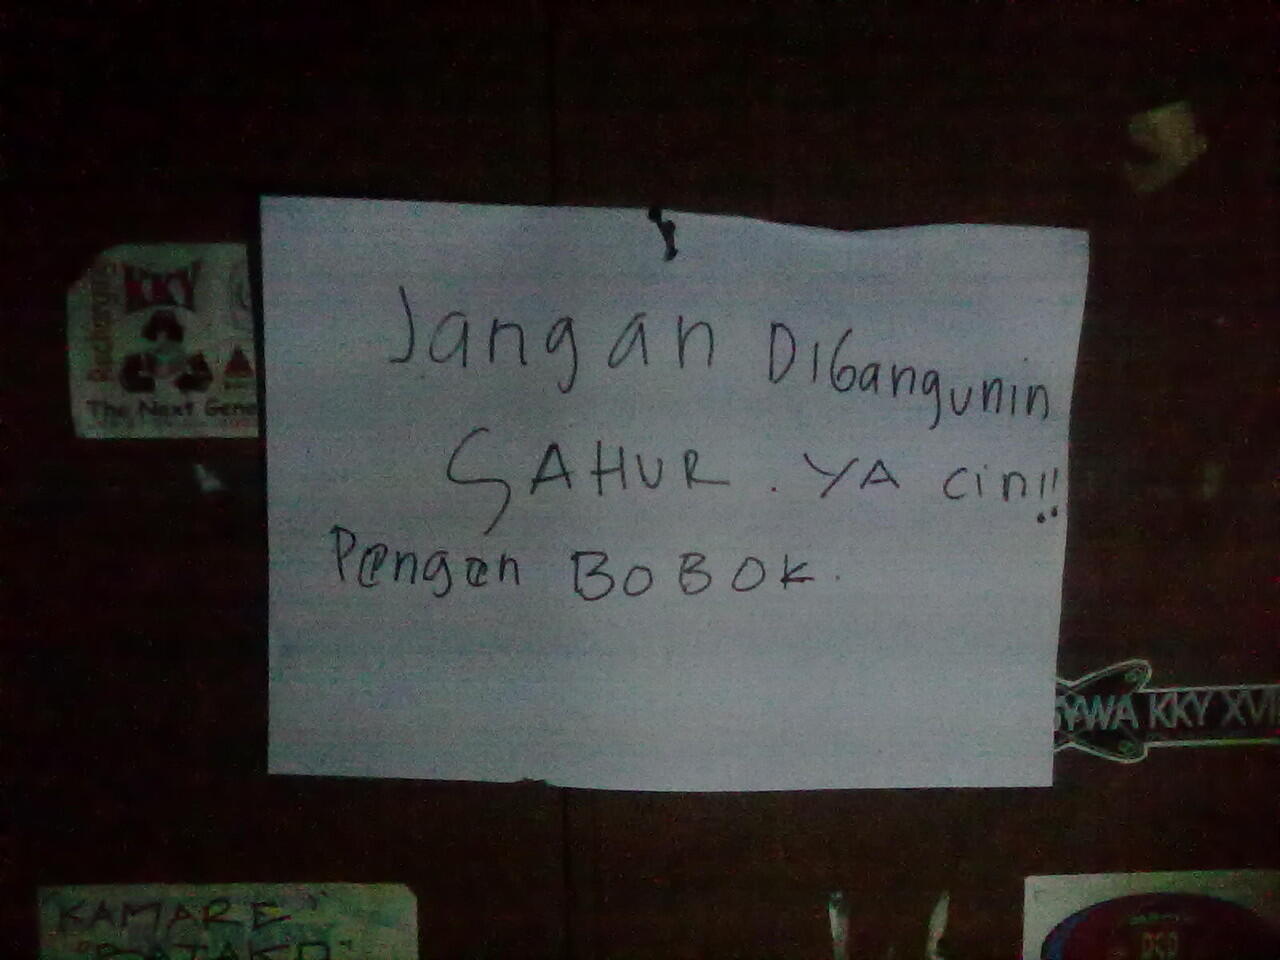 Jangan Dibangunin
SAHUR. YA cin!!
Pengen BOBOK.
Recharging
KKY
The Next Gene
SYWA KKY XVI
KAMARE